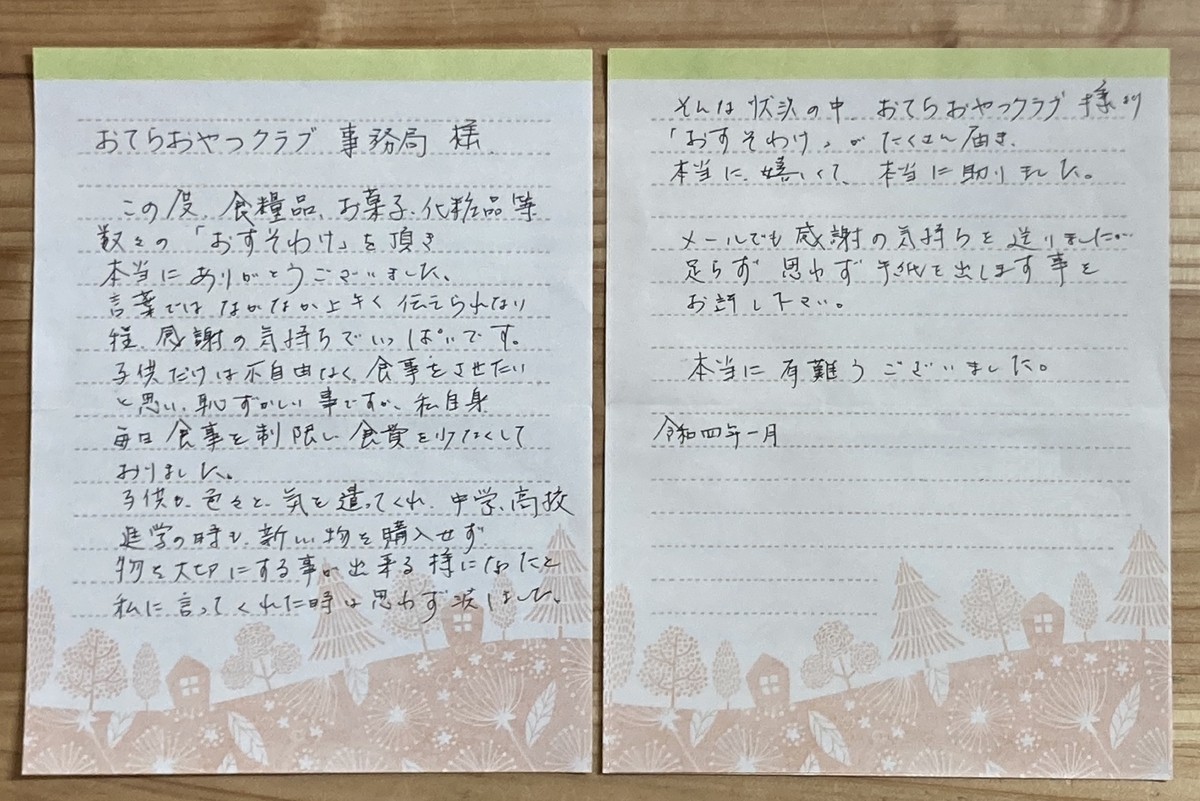 おてらおやつクラブ 事務局 様
この度、食糧品、お菓子、化粧品等
数々の「おすそわけ」を頂き
本当にありがとうございました。
言葉では なかなか上手く伝えられない
程、感謝の気持ちでいっぱいです。
子供だけは不自由なく、食事をさせたい
と思い、恥ずかしい事ですが、私自身
毎日食事を制限し食費を少なくして
おりました。
子供も、色々と、気を遣ってくれ、中学、高校
進学の時も、新しい物を購入せず
物を大切にする事が出来る様になったと
私に言ってくれた時は思わず涙しました。
そんな状況の中、おてらおやつクラブ様より
「おすそわけ」が たくさん届き、
本当に、嬉しくて、本当に助りました。
メールでも感謝の気持ちを送りましたが
足らず 思わず手紙を出します事を
お許し下さい。
本当に有難うございました。
令和四年一月